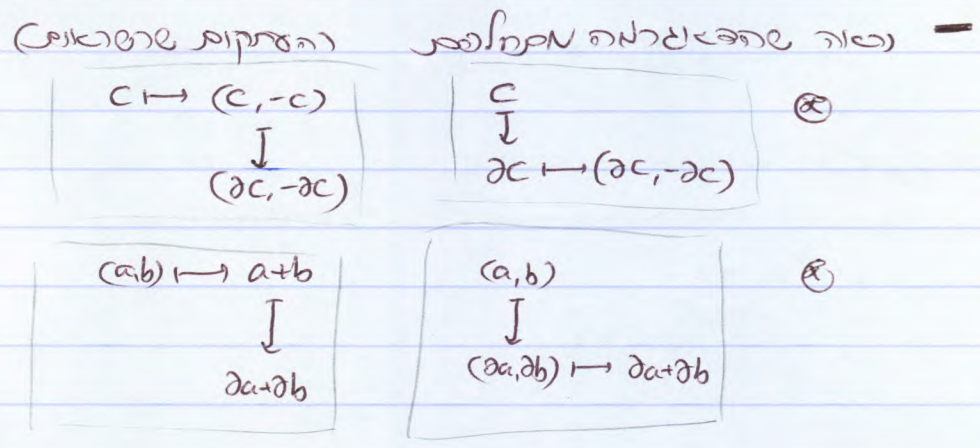 – נראה שהדיאגרמה מתחלפת (העתקות שרשראות)
⊛ c c ↦ (c,-c)
↓ ↓
∂c ↦ (∂c,-∂c) (∂c,-∂c)
⊛ (a,b) (a,b) ↦ a+b
↓ ↓
(∂a,∂b) ↦ ∂a+∂b ∂a+∂b